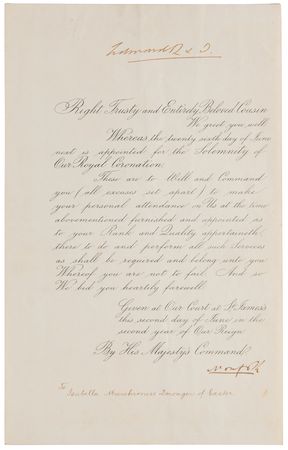 Edward R & I.
Right Trusty and Entirely Beloved Cousin
We greet you well
Whereas the twenty sixth day of June
next is appointed for the Solemnity of
Our Royal Coronation
These are to Will and Command
you (all excuses set apart) to make
your personal attendance on Us at the time
abovementioned furnished and appointed as
to your Rank and Quality appertaineth
there to do and perform all such Services
as shall be required and belong unto you
Whereof you are not to fail. And so
We bid you heartily farewell.
Given at Our Court at St. James's
this second day of June in the
second year of Our Reign
By His Majesty's Command
Norfolk
To
Isabella Marchioness Dowager of Exeter